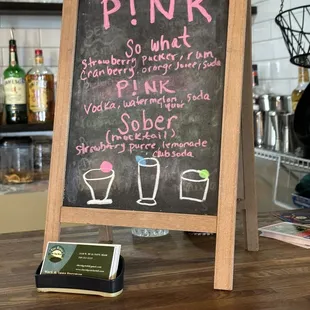 P!NK
So what
Strawberry pucker, rum
Cranberry, orange juice, soda
P!NK
Vodka, watermelon, soda
pucker
Sober
(mocktail)
strawberry puree, lemonade
club soda